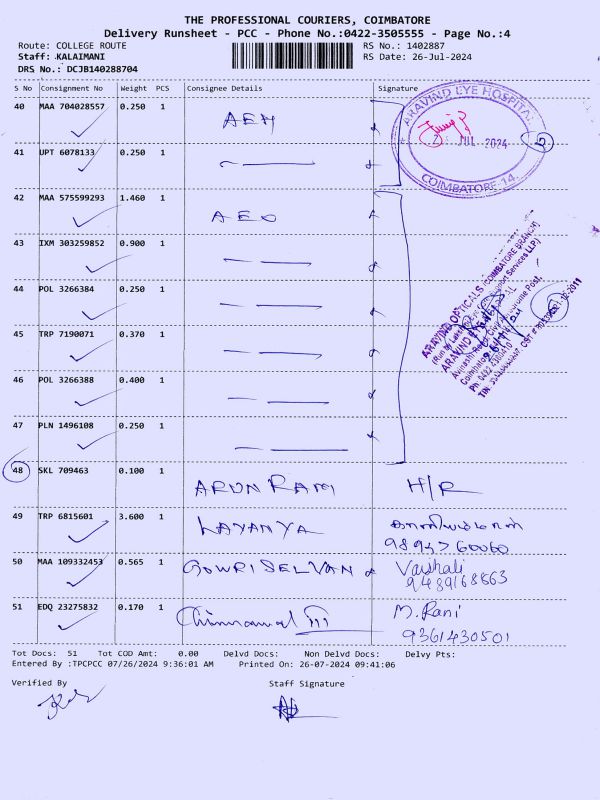 THE PROFESSIONAL COURIERS, COIMBATORE
Delivery Runsheet - PCC - Phone No.:0422-3505555 - Page No.:4
Route: COLLEGE ROUTE
RS No.: 1402887
Staff: KALAIMANI
RS Date: 26-Jul-2024
DRS No.: DCJB140288704
S No Consignment No Weight PCS Consignee Details Signature
40 MAA 704028557 0.250 1 AEH
ARAVIND EYE HOSPITAL
JUL 2024
COIMBATORE-14.
41 UPT 6078133 0.250 1
42 MAA 575599293 1.460 1 AEO
43 IXM 303259852 0.900 1
44 POL 3266384 0.250 1
45 TRP 7190071 0.370 1
ARAVIND OPTICALS (COIMBATORE BRANCH)
46 POL 3266388 0.400 1
47 PLN 1496108 0.250 1
48 SKL 709463 0.100 1 ARUN RAM H/R
49 TRP 6815601 3.600 1 LAVANYA
50 MAA 109332453 0.565 1 GOWRI SELVAN Vaishali
9489168863
51 EDQ 23275832 0.170 1 M. Rani
9361430501
Tot Docs: 51 Tot COD Amt: 0.00 Delvd Docs: Non Delvd Docs: Delvy Pts:
Entered By :TPCPCC 07/26/2024 9:36:01 AM Printed On: 26-07-2024 09:41:06
Verified By Staff Signature